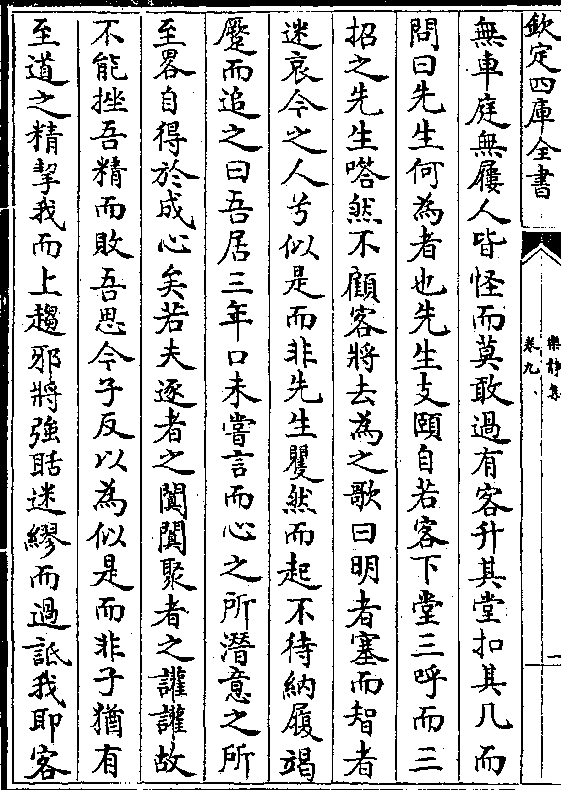 欽定四庫全書
樂靜集
卷九
一
無車庭無屨人皆怪而莫敢過有客升其堂扣其几而
問曰先生何為者也先生支頤自若客下堂三呼而三
招之先生嗒然不顧客將去為之歌曰明者塞而智者
迷哀今之人兮似是而非先生瞿然而起不待納履竭
蹷而追之曰吾居三年口未嘗言而心之所潛意之所
至畧自得於成心矣若夫逐者之闐闐聚者之讙讙故
不能挫吾精而敗吾思今子反以為似是而非子猶有
至道之精挈我而上趨邪將強聒迷繆而過詆我耶客